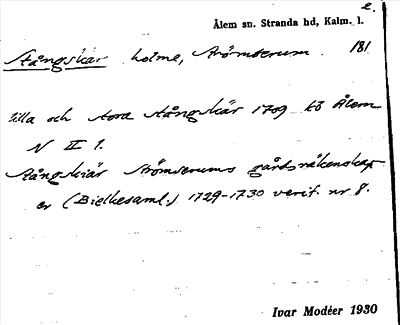 2.
Ålem sn. Stranda hd, Kalm. l.
Stångskär holme, Strömserum. 181
Lilla och Stora Stångskär 1709 KB Ålem
N II 1.
Stångskiär Strömserums gårdsräkenskap
er (Bielkesaml.) 1729-1730 verif. nr 8.
Ivar Modéer 1930